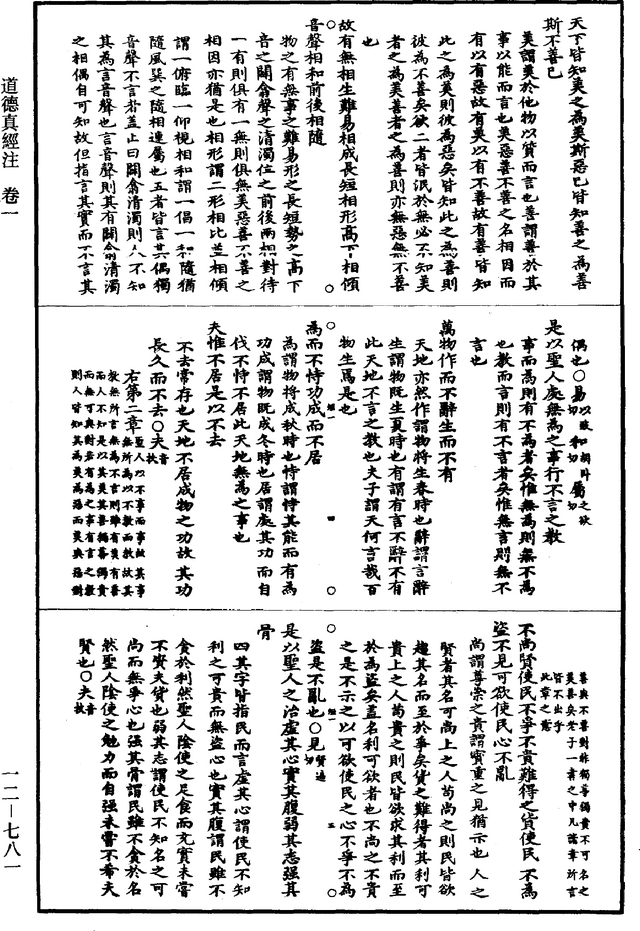 道德真經注 卷一
一二—七八一
天下皆知美之為美斯惡已皆知善之為善
斯不善已
美謂美於他物以質而言也善謂善於其
事以能而言也美惡善不善之名相因而
有以有惡故有美以有不善故有善皆知
此之為美則彼為惡矣皆知此之為善則
彼為不善矣欲二者皆泯於無必不知美
者之為美善者之為善則亦無惡無不善
也
故有無相生難易相成長短相形高下相傾
音聲相和前後相隨
物之有無事之難易形之長短勢之高下
音之闢翕聲之清濁位之前後兩相對待
一有則俱有一無則俱無美惡善不善之
相因亦猶是也相形謂二形相比並相傾
謂一俯臨一仰視相和謂一倡一和隨猶
隨風巽之隨相連屬也五者皆言其偶獨
音聲不言者蓋止曰闢翕清濁則人不知
其為言音聲也言音聲則其有闢翕清濁
之相偶自可知故但指言其實而不言其
偶也○易以豉切和胡卧切屬之欲切
是以聖人處無為之事行不言之教
事而為則有不為者矣惟無為則無不為
也教而言則有不言者矣惟無言則無不
言也
萬物作而不辭生而不有
天地亦然作謂物將生春時也辭謂言辭
生謂物既生夏時也有謂有言不辭不有
此天地不言之教也夫子謂天何言哉百
物生焉是也
為而不恃功成而不居
為謂物將成秋時也恃謂恃其能而有為
功成謂物既成冬時也居謂處其功而自
伐不恃不居此天地無為之事也
夫惟不居是以不去
不去常存也天地不居成物之功故其功
長久而不去○夫音扶
右第二章聖人以不事而事故其事
無所為以不教而教故其
教無所言無為不言則雖有美有善
而人不知是以其美其善獨尊獨貴
而無可與對若有為之事有言之教
則人皆知其為美為善而美與惡對
善與不善對非獨尊獨貴不可名之
美善矣老子一書之中凡諸章所言
皆不出乎
此章之意
不尚賢使民不爭不貴難得之貨使民不為
盜不見可欲使民心不亂
尚謂尊崇之貴謂寶重之見猶示也人之
賢者其名可尚上之人苟尚之則民皆欲
趨其名而至於爭矣貨之難得者其利可
貴上之人苟貴之則民皆欲求其利而至
於為盜矣蓋名利可欲者也不尚之不貴
之是不示之以可欲使民之心不爭不為
盜是不亂也○見賢遍切
是以聖人之治虛其心實其腹弱其志强其
骨
四其字皆指民而言虛其心謂使民不知
利之可貴而無盜心也實其腹謂民雖不
貪於利然聖人陰使之足食而充實未嘗
不資夫貨也弱其志謂使民不知名之可
尚而無爭心也强其骨謂民雖不貪於名
然聖人陰使之勉力而自强未嘗不希夫
賢也○夫音扶